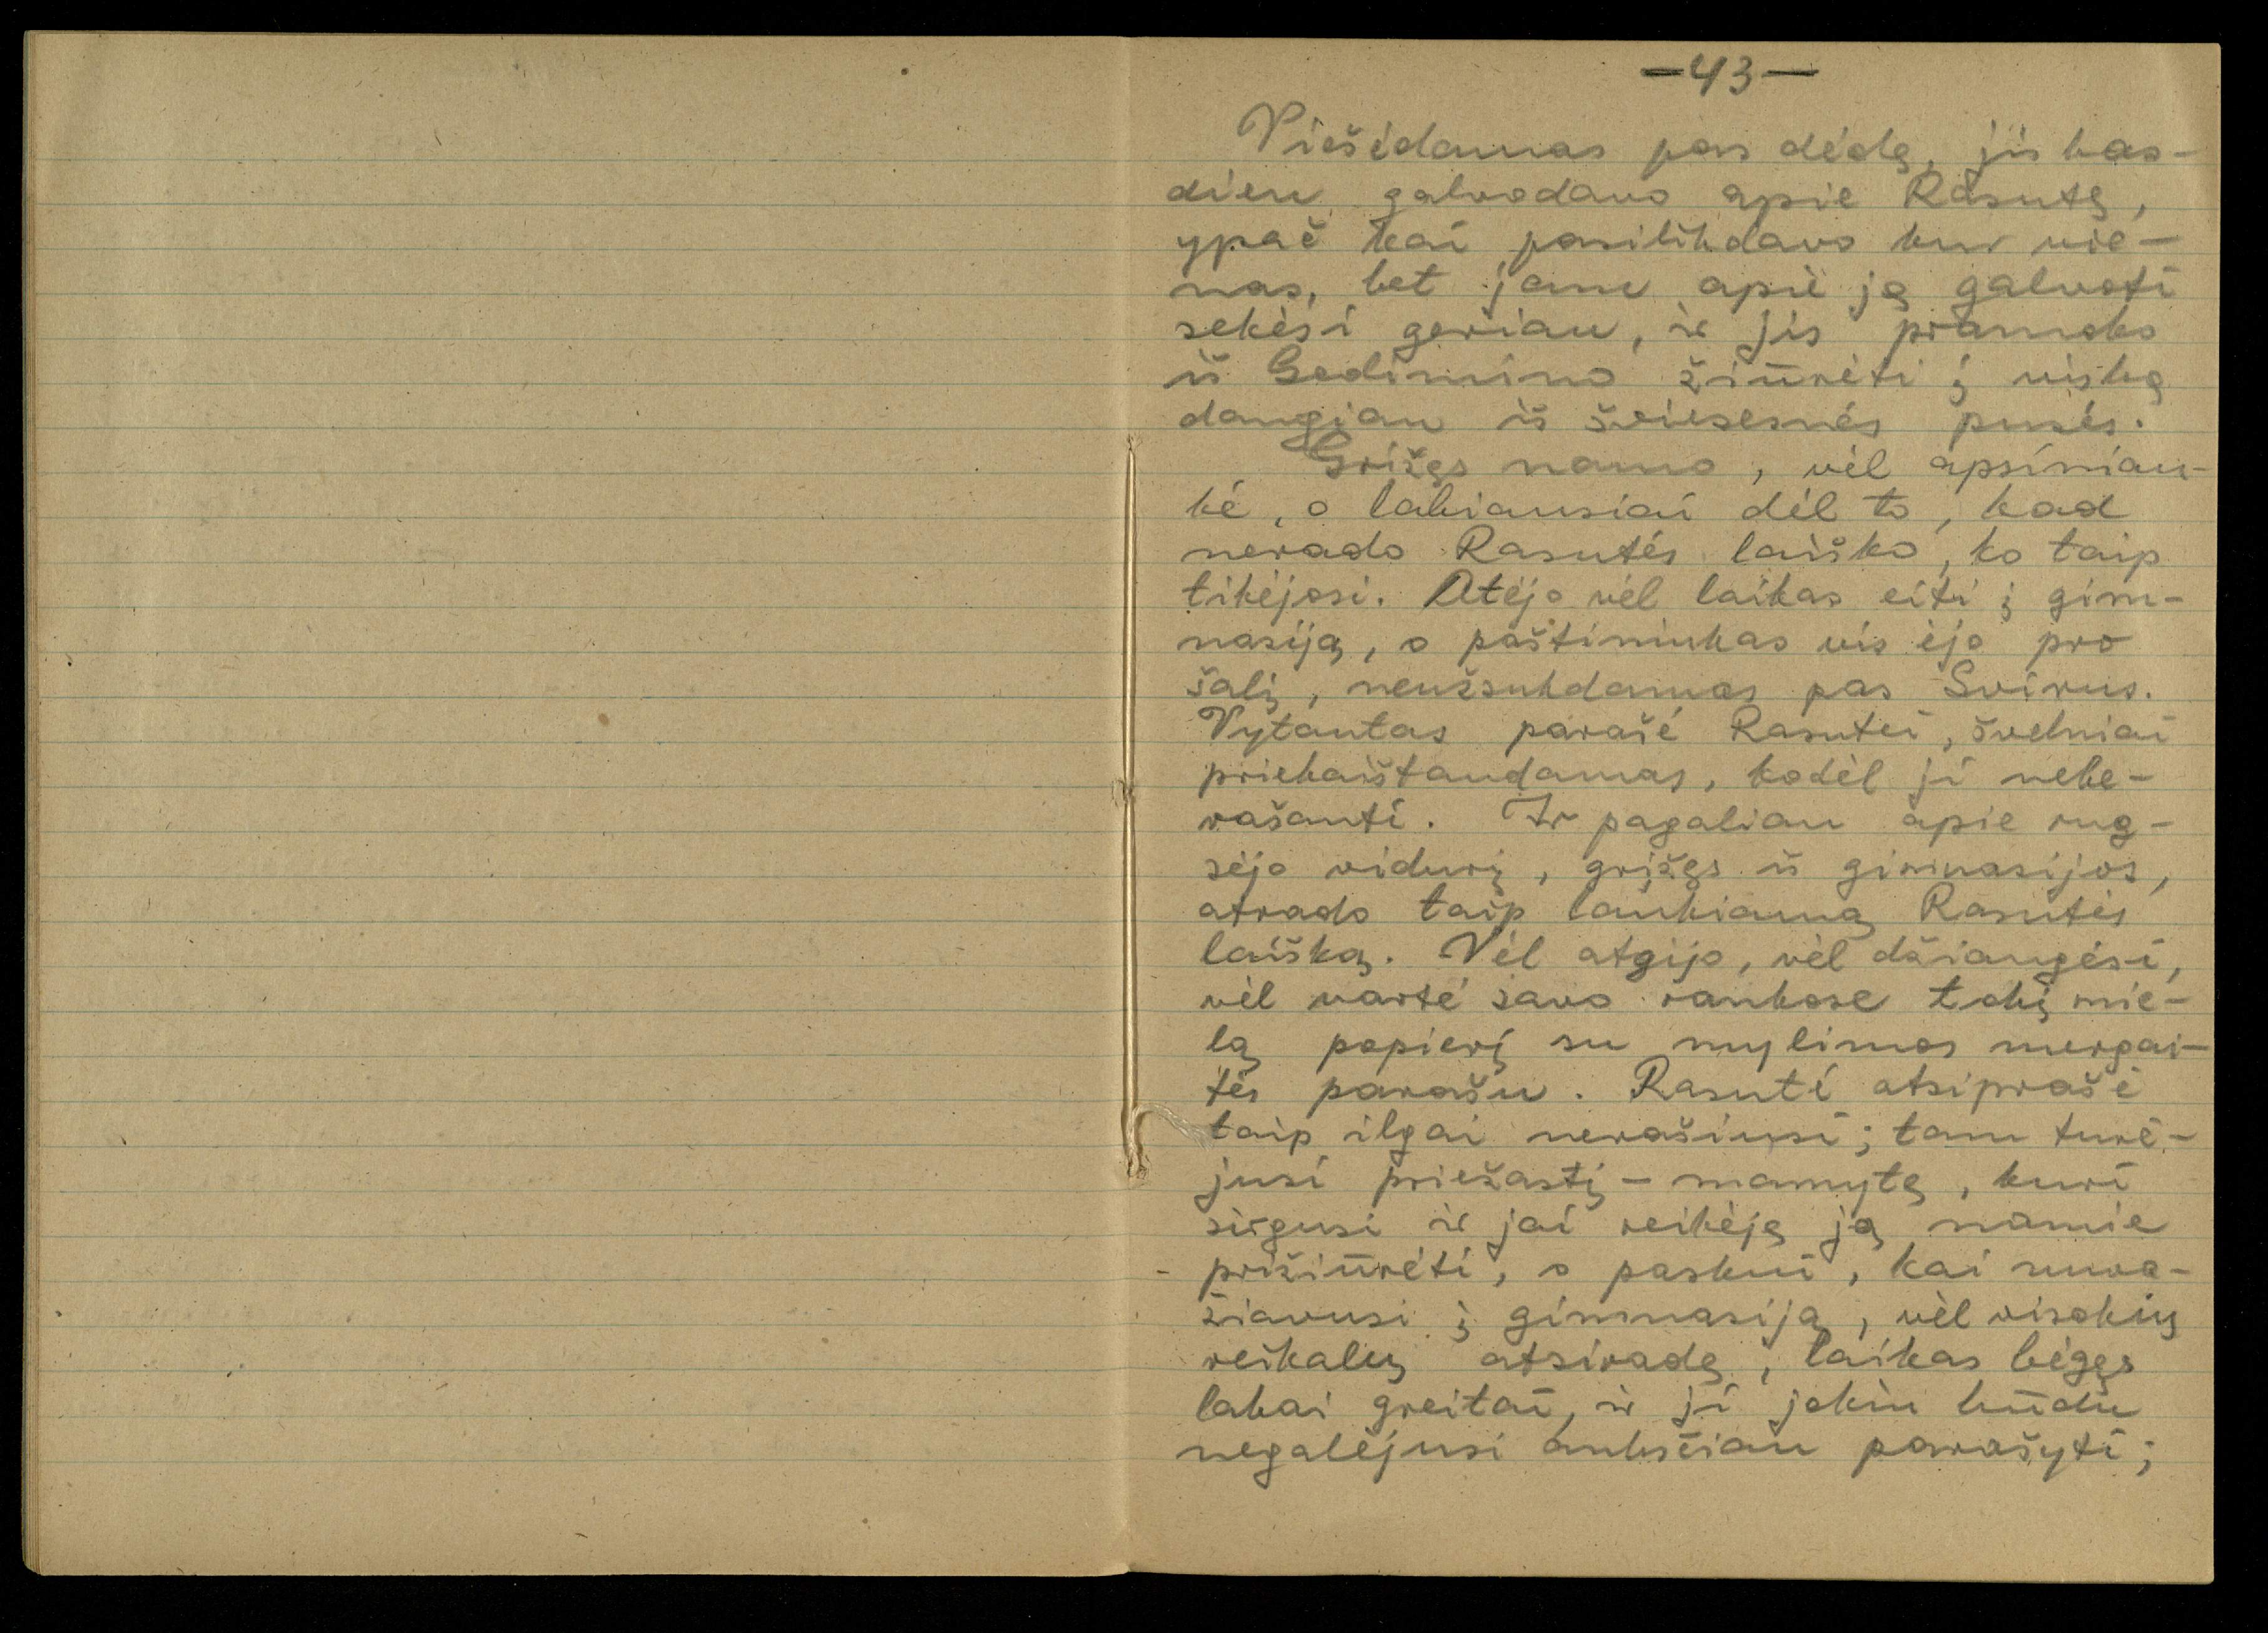 —43—
Viešėdamas pas dėdę, jis kas-
dien galvodavo apie Rasutę,
ypač kai pasilikdavo kur vie-
nas, bet jam apie ją galvoti
sekėsi geriau, ir jis pramoko
iš Gedimino žiūrėti į viską
daugiau iš šviesesnės pusės.
Grįžęs namo, vėl apsiniau-
kė, o labiausiai dėl to, kad
nerado Rasutės laiško, ko taip
tikėjosi. Atėjo vėl laikas eiti į gim-
nasiją, o paštininkas vis ėjo pro
šalį, neužsukdamas pas Svirus.
Vytautas parašė Rasutei, švelniai
priekaištaudamas, kodėl ji nebe-
rašanti. Ir pagaliau apie rug-
sėjo vidurį, grįžęs iš gimnasijos,
atrado taip laukiamą Rasutės
laišką. Vėl atgijo, vėl džiaugėsi,
vėl vartė savo rankose tokį mie-
lą popierį su mylimos mergai-
tės parašu. Rasutė atsiprašė
taip ilgai nerašiusi; tam turė-
jusi priežastį – mamytę, kuri
sirgusi ir jai reikėję ją namie
prižiūrėti, o paskui, kai nuva-
žiavusi į gimnasiją, vėl visokių
reikalų atsiradę, laikas bėgęs
labai greitai, ir ji jokiu būdu
negalėjusi anksčiau parašyti;